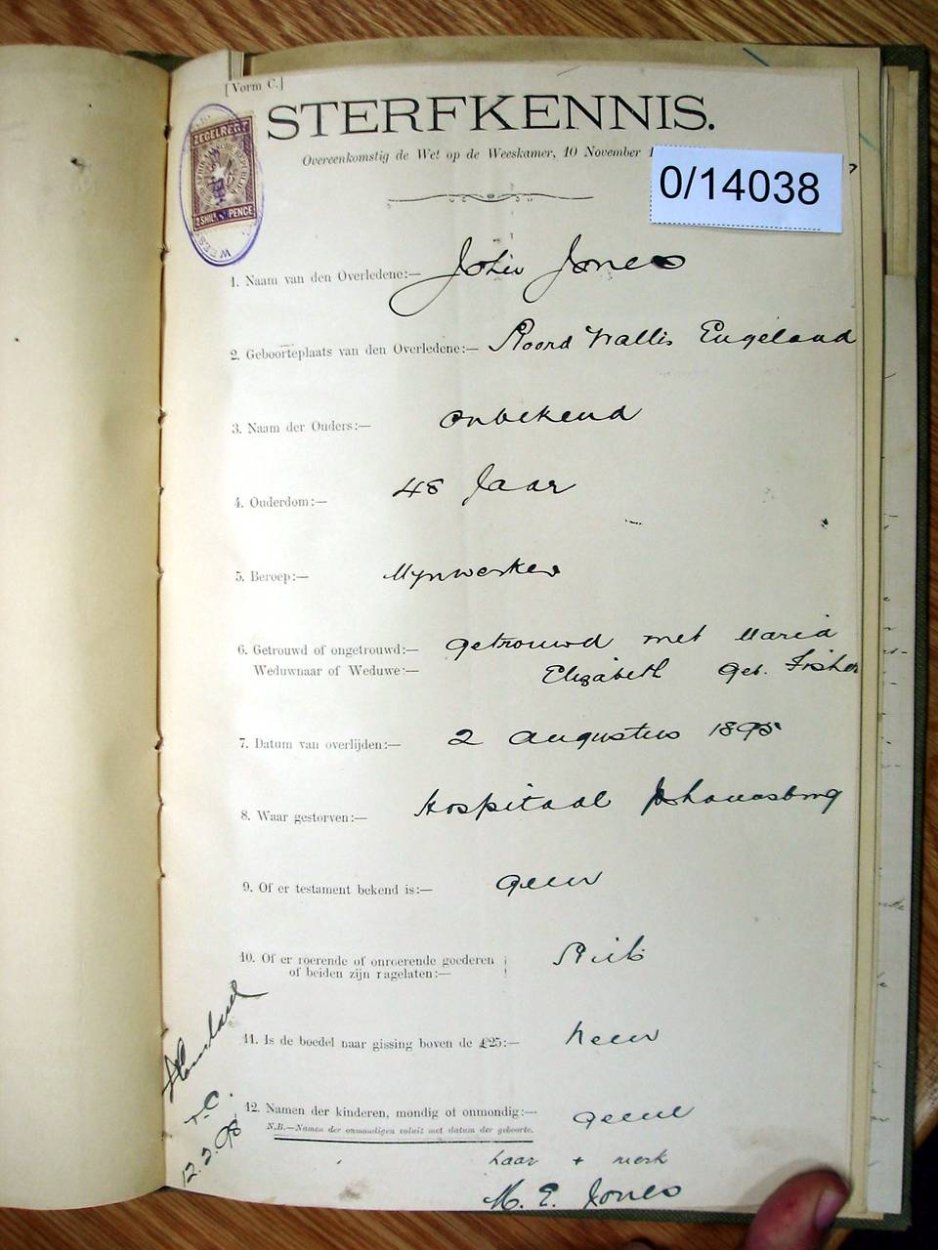 [Vorm C.]
STERFKENNIS.
Overeenkomstig de Wet op de Weeskamer, 10 November
0/14038
ZEGELREGT
2 SHILL PENCE
1. Naam van den Overledene:— John Jones
2. Geboorteplaats van den Overledene:— Noord Wallis Engeland
3. Naam der Ouders:— onbekend
4. Ouderdom:— 48 Jaar
5. Beroep:— Mynwerker
6. Getrouwd of ongetrouwd:— getrouwd met Maria
Weduwnaar of Weduwe:— Elizabeth geb. Fisher
7. Datum van overlijden:— 2 Augustus 1895
8. Waar gestorven:— Hospitaal Johannesburg
9. Of er testament bekend is:— geen
10. Of er roerende of onroerende goederen Niets
of beiden zijn ragelaten:—
11. Is de boedel naar gissing boven de £25:— Neen
12. Namen der kinderen, mondig of onmondig:— geene
N.B.—Namen der onmondigen voluit met datum der geboorte.
haar + merk
M. E. Jones
12.2.98